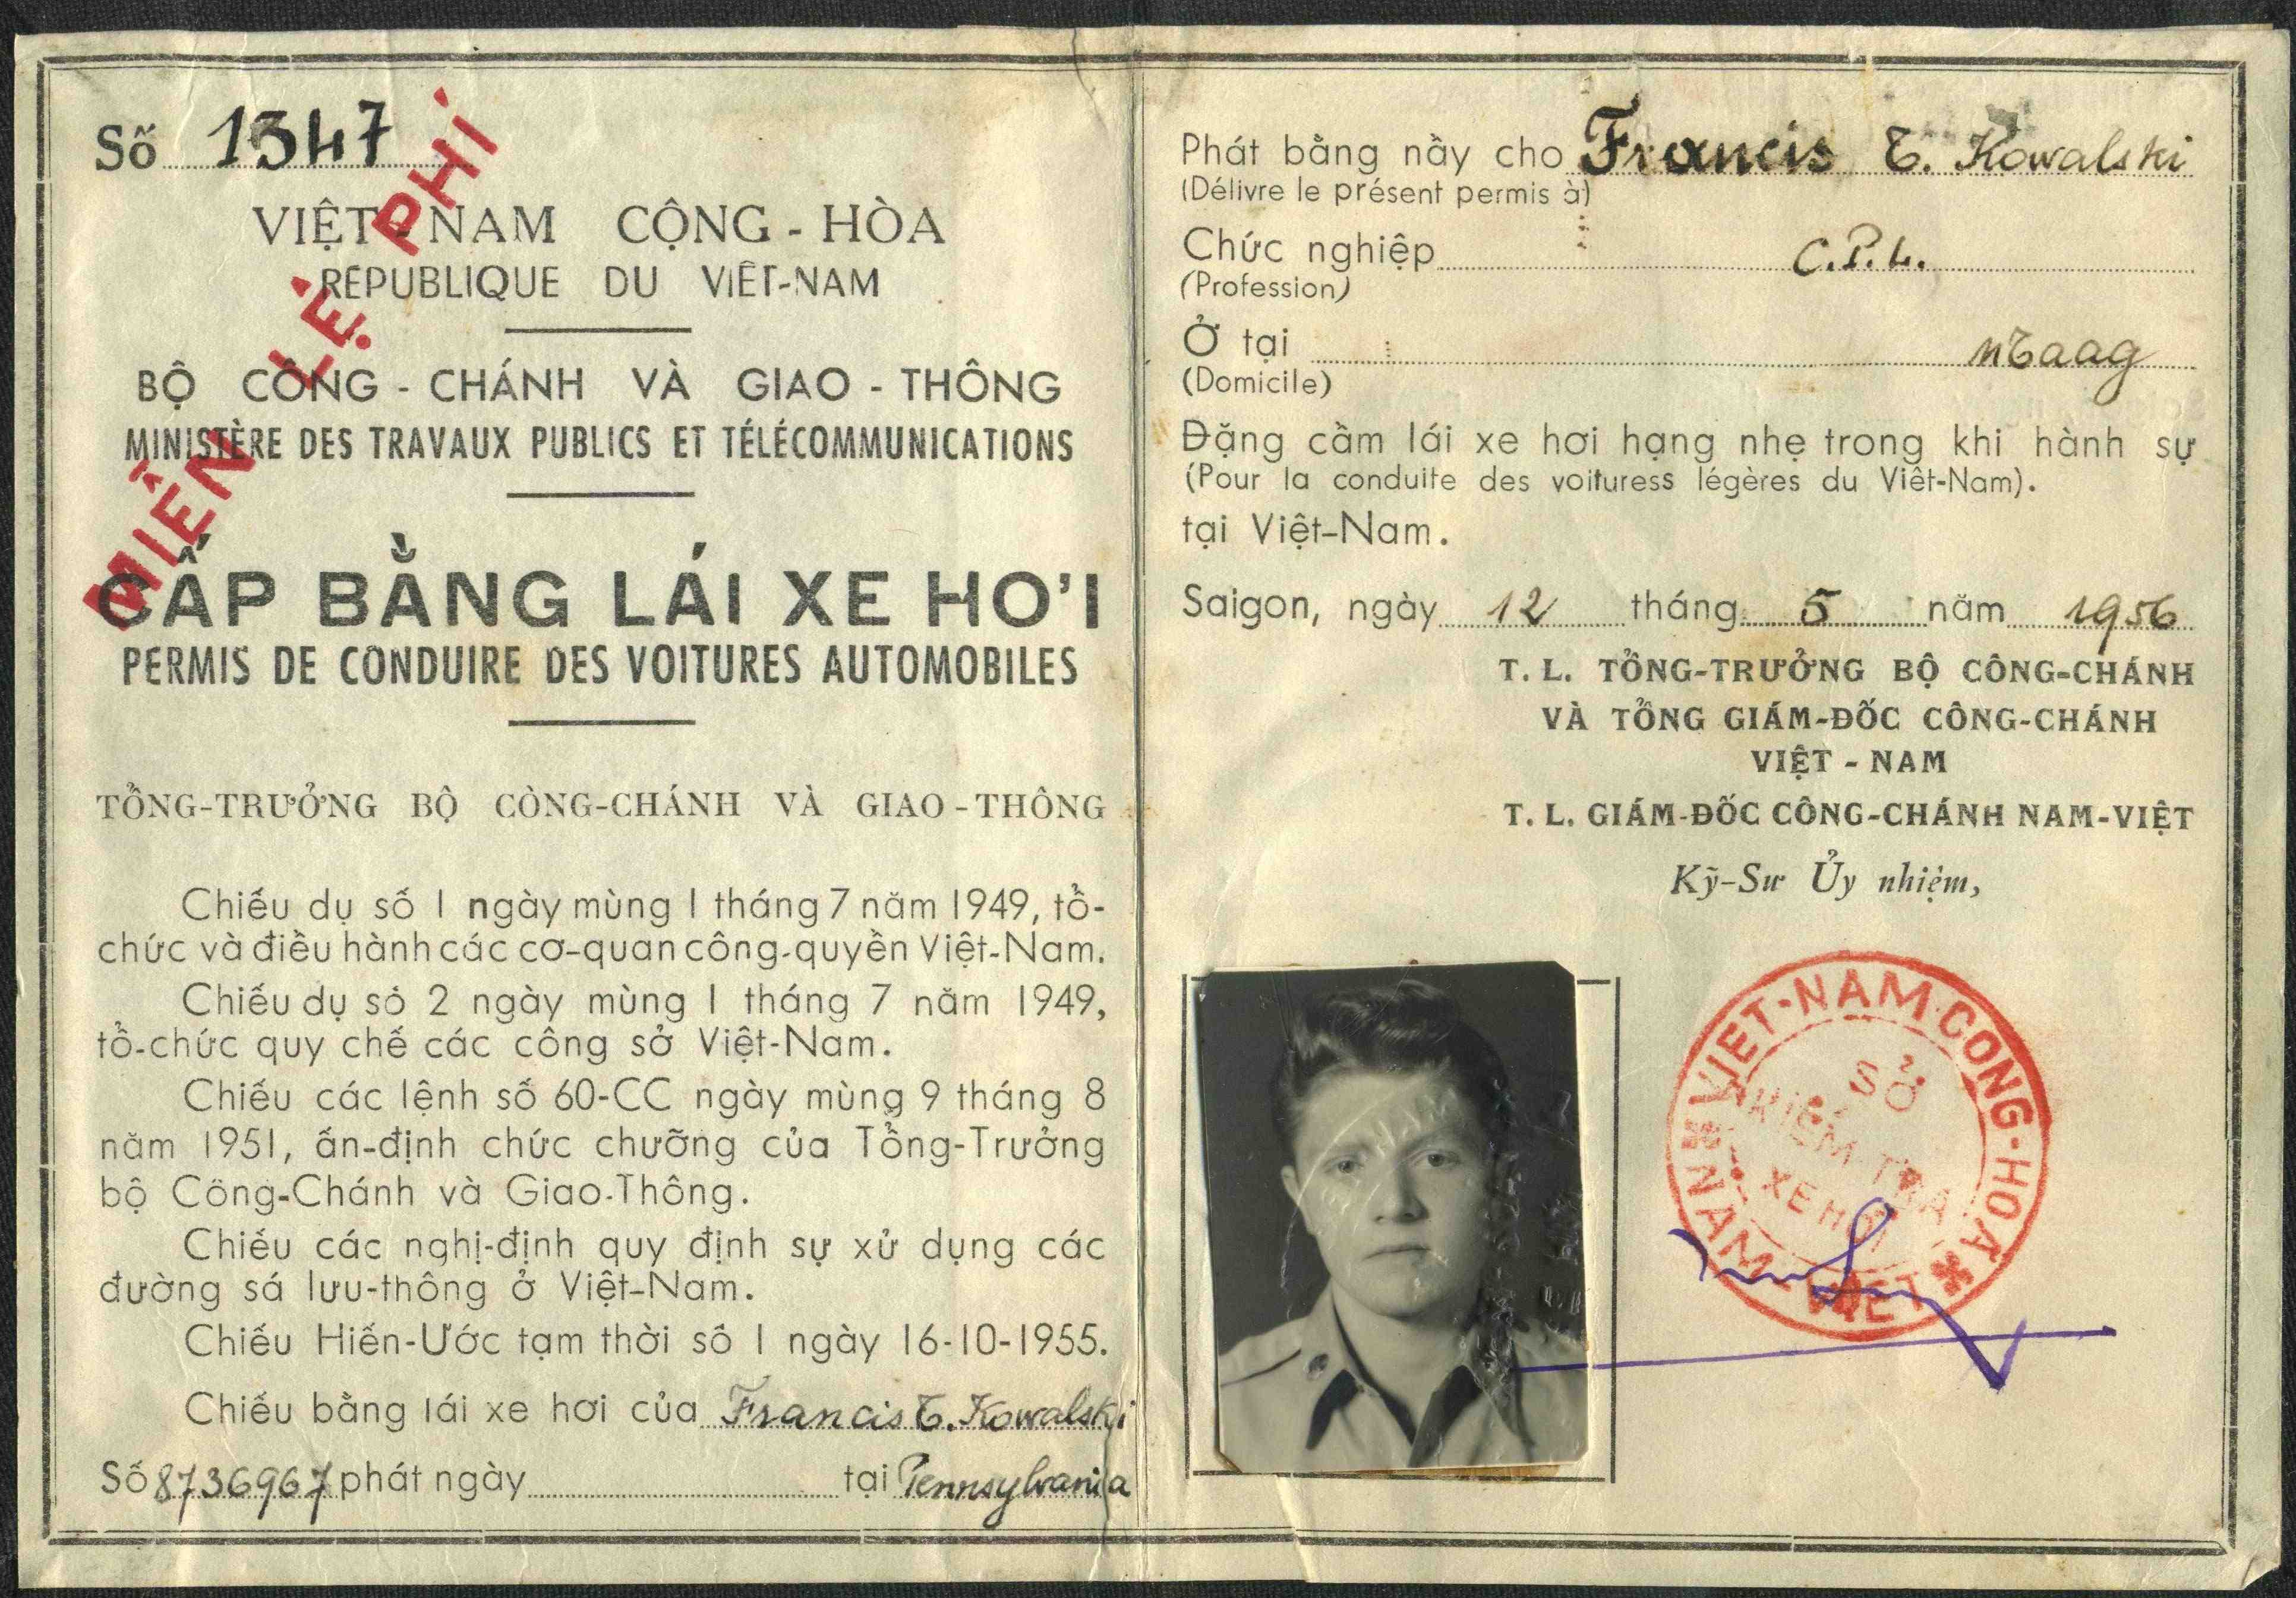 Số 1547
MIỄN LỆ PHÍ
VIỆT-NAM CỘNG-HÒA
REPUBLIQUE DU VIÊT-NAM
BỘ CÔNG-CHÁNH VÀ GIAO-THÔNG
MINISTÈRE DES TRAVAUX PUBLICS ET TÉLÉCOMMUNICATIONS
CẤP BẰNG LÁI XE HƠI
PERMIS DE CONDUIRE DES VOITURES AUTOMOBILES
TỔNG-TRƯỞNG BỘ CÒNG-CHÁNH VÀ GIAO-THÔNG
Chiếu dụ số 1 ngày mùng 1 tháng 7 năm 1949, tổ-
chức và điều hành các cơ-quan công-quyền Việt-Nam.
Chiếu dụ số 2 ngày mùng 1 tháng 7 năm 1949,
tổ-chức quy chế các công sở Việt-Nam.
Chiếu các lệnh số 60-CC ngày mùng 9 tháng 8
năm 1951, ấn-định chức chưỡng của Tổng-Trưởng
bộ Công-Chánh và Giao-Thông.
Chiếu các nghị-định quy định sự xử dụng các
đường sá lưu-thông ở Việt-Nam.
Chiếu Hiến-Ước tạm thời số 1 ngày 16-10-1955.
Chiếu bằng lái xe hơi của Francis T. Kowalski
Số 8736967 phát ngày tại Pennsylvania
Phát bằng nầy cho Francis T. Kowalski
(Délivre le présent permis à)
Chức nghiệp C.P.L.
(Profession)
Ở tại MTaag
(Domicile)
Đặng cầm lái xe hơi hạng nhẹ trong khi hành sự
(Pour la conduite des voituress légères du Viêt-Nam).
tại Việt-Nam.
Saigon, ngày 12 tháng 5 năm 1956
T. L. TỔNG-TRƯỞNG BỘ CÔNG-CHÁNH
VÀ TỔNG GIÁM-ĐỐC CÔNG-CHÁNH
VIỆT-NAM
T. L. GIÁM-ĐỐC CÔNG-CHÁNH NAM-VIỆT
Kỹ-Sư Ủy nhiệm,
VIET-NAM-CONG-HOA
SỞ
KIỂM-TRA
XE HƠI
NAM-VIET